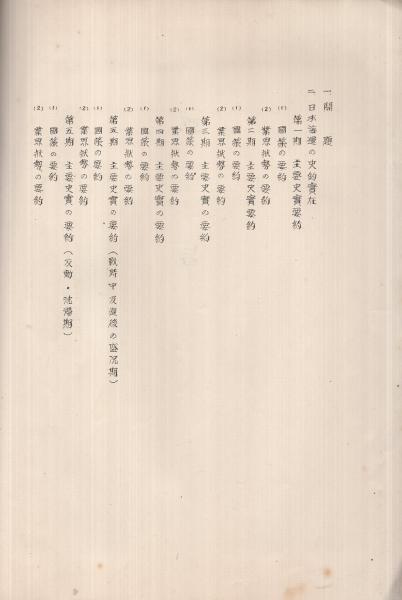 一 問題
二 日本海運の史的實在
第一期 主要史實要約
(1) 國策の要約
(2) 業界狀勢の要約
第二期 主要史實要約
(1) 國策の要約
(2) 業界狀勢の要約
第三期 主要史實の要約
(1) 國策の要約
(2) 業界狀勢の要約
第四期 主要史實の要約
(1) 國策の要約
(2) 業界狀勢の要約
第五期 主要史實の要約(戰時中及直後の盛況期)
(1) 國策の要約
(2) 業界狀勢の要約
第五期 主要史實の要約(反動・沈滯期)
(1) 國策の要約
(2) 業界狀勢の要約